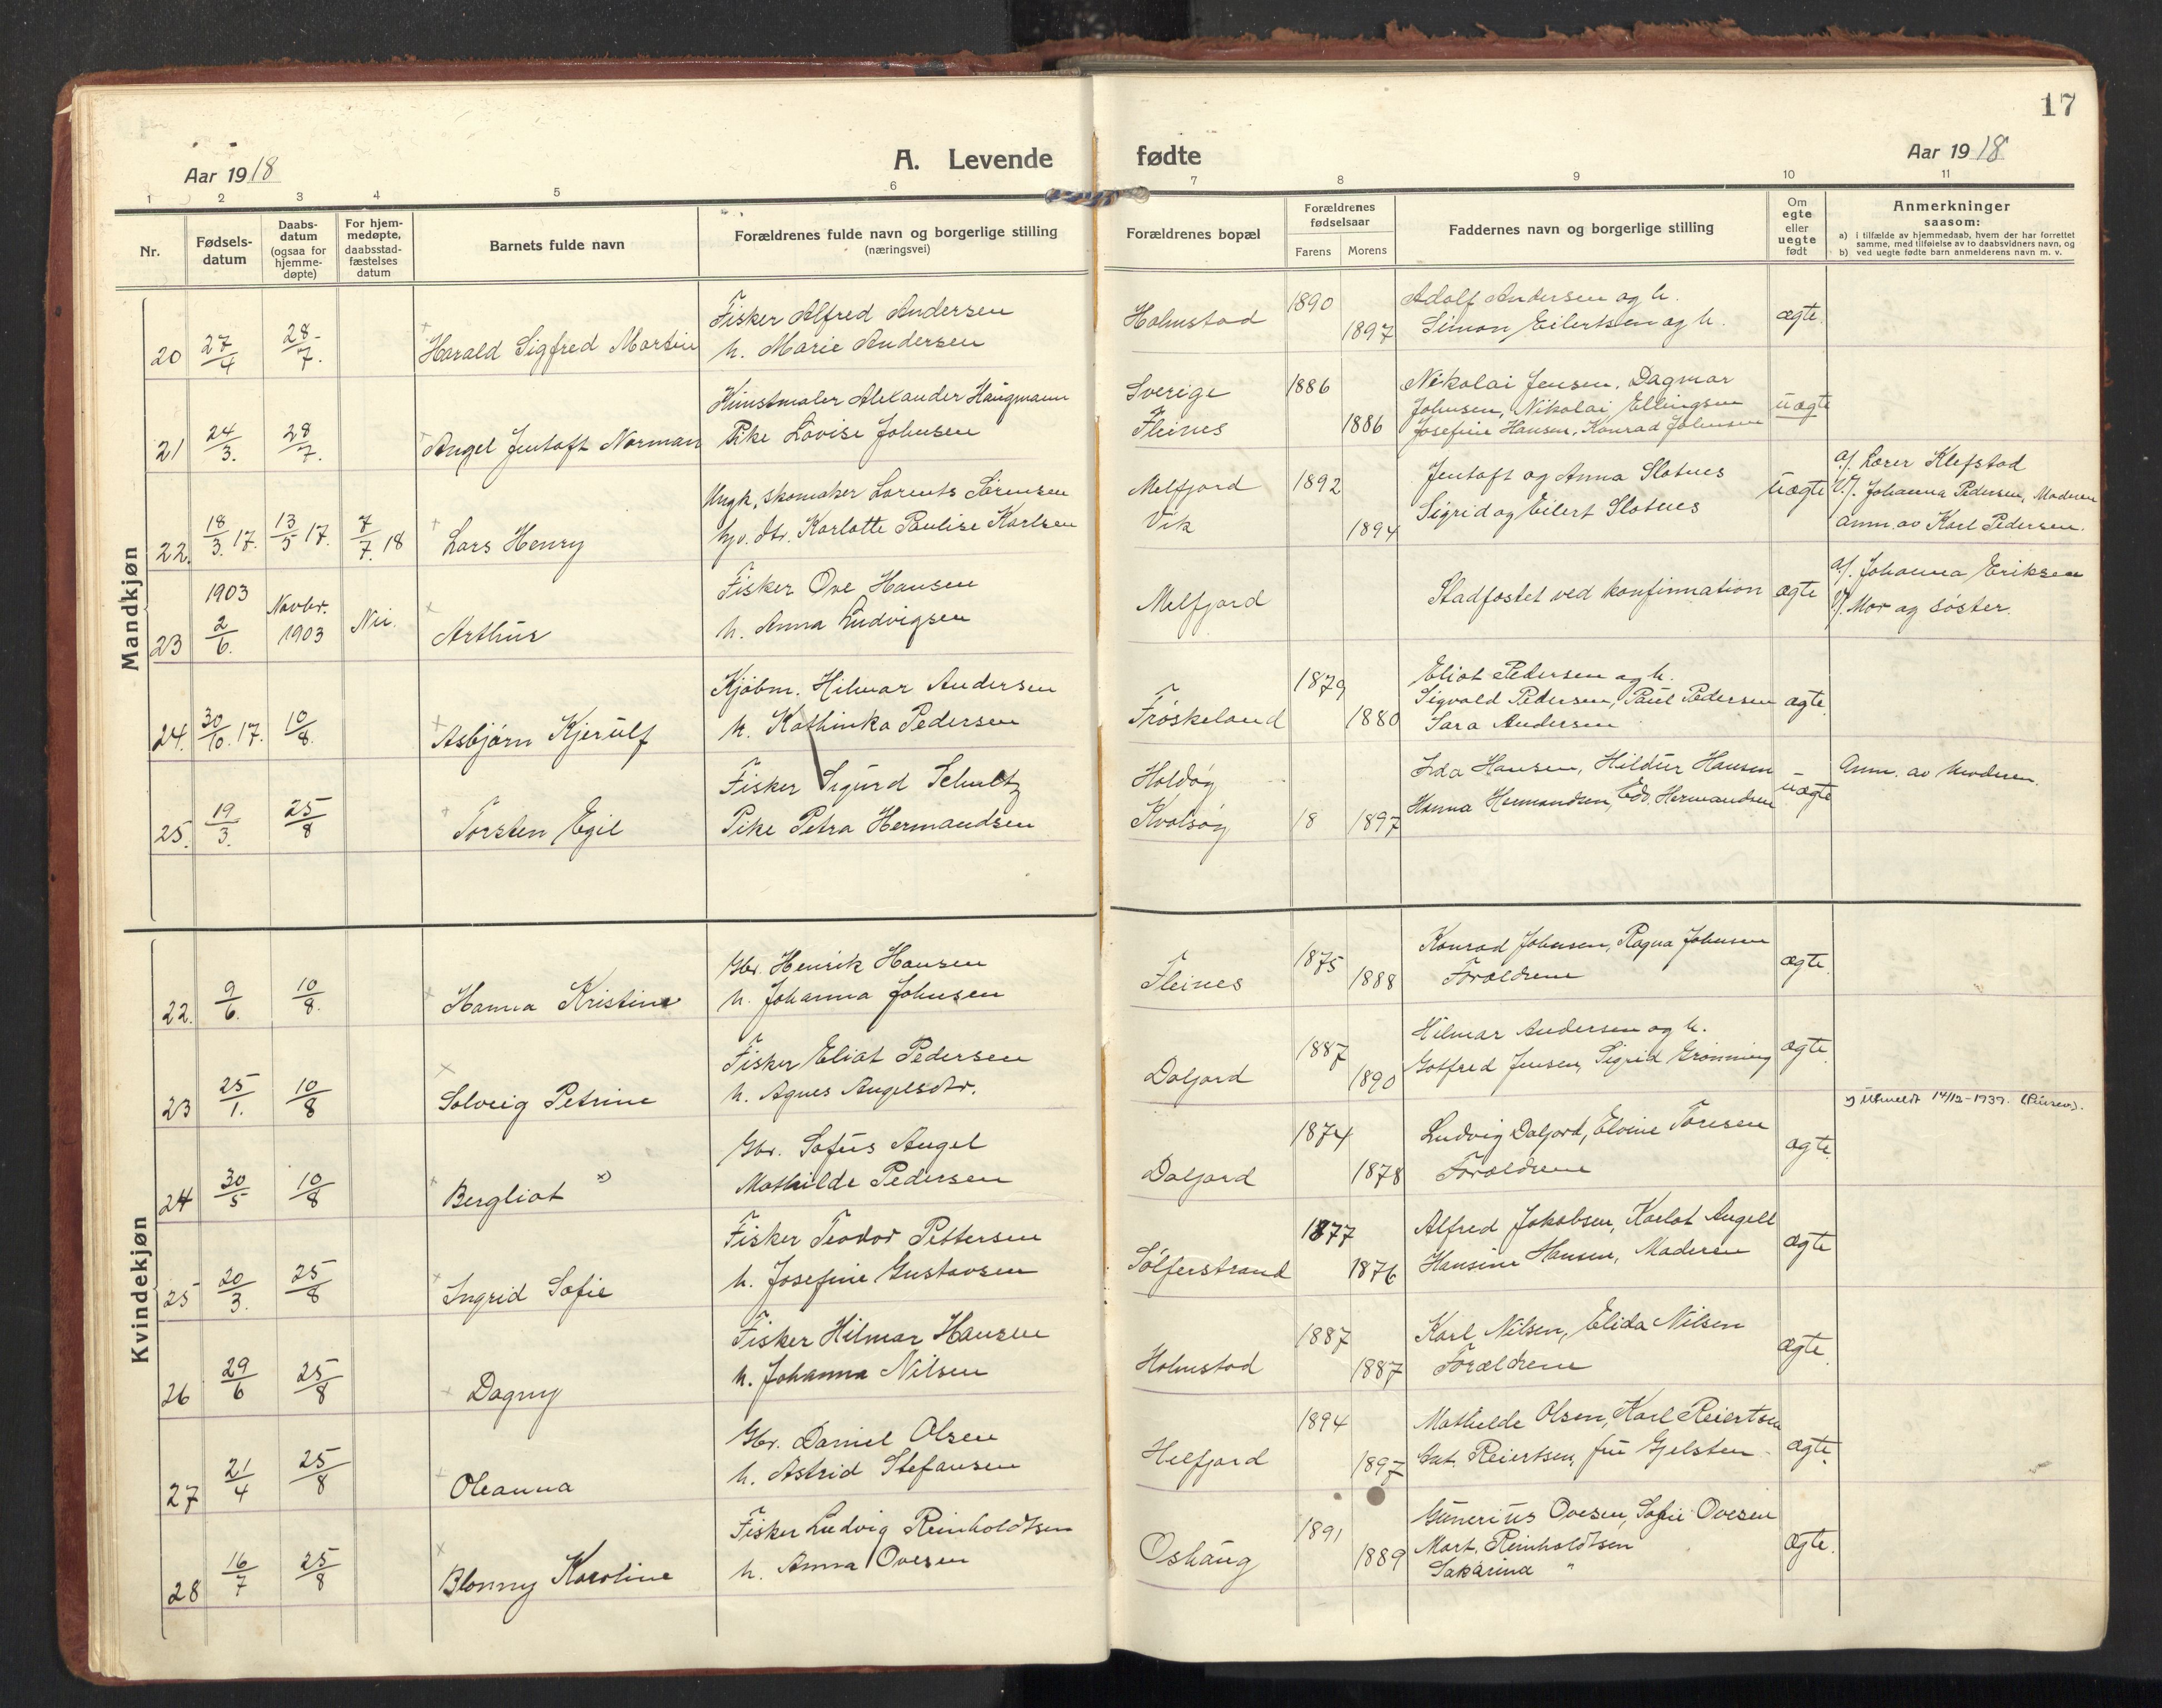 17
Aar 1918
A. Levende fødte
Aar 1918
1 2 3 4 5 6 7 8 9 10 11
Nr.
Fødsels-
datum
Daabs-
datum
(ogsaa for
hjemme-
døpte)
For hjem-
medøpte,
daabsstad-
fæstelses
datum
Barnets fulde navn
Forældrenes fulde navn og borgerlige stilling
(næringsvei)
Forældrenes bopæl
Forældrenes
fødselsaar
Farens Morens
Faddernes navn og borgerlige stilling
Om
egte
eller
uegte
født
Anmerkninger
saasom:
a) i tilfælde av hjemmedaab, hvem der har forrettet
samme, med tilføielse av to daabsvidners navn, og
b) ved uegte fødte barn anmelderens navn m. v.
Mandkjøn
20 27/4 28/7. Harald Sigfred Martin
Fisker Alfred Andersen
h. Marie Andersen
Holmstad 1890 1897
Adolf Andersen og h.
Simon Eilertsen og h.
ægte
21 24/3. 28/7. Angel Jentoft Norman
Kunstmaler Alexander Haugmann
Pike Lovise Johnsen
Sverige
Fleines
1886 1886
Nikolai Jensen, Dagmar
Johnsen, Nikolai Ellingsen
Josefine Hansen, Konrad Johnsen
uægte
22. 18/3.17. 13/5 17. 7/7.18 Lars Henry
Ungk, skomaker Lorents Sørensen
hjv. dtr. Karlotte Pauline Karlsen
Melfjord
Vik
1892 1894
Jentoft og Anna Slotnes
Sigrid og Eilert Slotnes
uægte
a/. Lærer Klefstad
V/. Johanna Pedersen, Moderen
anm. av Karl Pedersen.
23 1903 2/6. Novbr. 1903 Nei. Arthur
Fisker Ove Hansen
h. Anna Ludvigsen
Melfjord
Stadfæstet ved konfirmation
ægte
a/. Johanna Eriksen
V/. Mor og søster.
24. 30/10.17. 10/8. Asbjørn Kjerulf
Kjøbm. Hilmar Andersen
h. Kathinka Pedersen
Frøskeland 1879 1880
Eliot Pedersen og h.
Sigvald Pedersen, Paul Pedersen
Sara Andersen
ægte.
25. 19/3. 25/8 Torsten Egil
Fisker Sigurd Schultz
Pike Petra Hermandsen
Holdøy
Kvalsøy
18 1897
Ida Hansen, Hildur Hansen
Hanna Hermandsen, Edv. Hermandsen
uægte
Anm. av Moderen.
Kvindekjøn
22. 9/6. 10/8. Hanna Kristine
Gbr. Henrik Hansen
h. Johanna Johnsen
Fleines 1875 1888
Konrad Johnsen, Ragna Johnsen
Forældrene
ægte.
23 25/1. 10/8 Solveig Petrine
Fisker Eliot Pedersen
h. Agnes Angelsdtr.
Daljord 1887 1890
Hilmar Andersen og h.
Gotfred Jensen, Sigrid Grønning
ægte
24 30/5 10/8 Bergliot x)
Gbr. Sofus Angel
Mathilde Pedersen
Daljord 1874 1878
Ludvig Daljord, Elvine Toresen
Forældrene
ægte.
x) Utmeldt 14/12-1937. (Pinsev).
25 20/3. 25/8 Ingrid Sofie
Fisker Teodor Pettersen
h. Josefine Gustavsen
Sølferstrand 1877 1876
Alfred Jakobsen, Karlot Angell
Hansine Hansen, Moderen
ægte
26 29/6 25/8 Dagny
Fisker Hilmar Hansen
h. Johanna Nilsen
Holmstad 1887 1887
Karl Nilsen, Elida Nilsen
Forældrene
ægte.
27 21/4 25/8 Oleanna
Gbr. Daniel Olsen
h. Astrid Stefansen
Helfjord 1894 1897
Mathilde Olsen, Karl Reiertsen
Ant. Reiertsen, fru Gjelsten
ægte.
28 16/7 25/8 Blonny Karoline
Fisker Ludvig Reinholdtsen
h. Anna Ovesen
Oshaug 1891 1889
Gunerius Ovesen, Sofie Ovesen
Mart. Reinholdtsen
Sakarina "
Ægte.